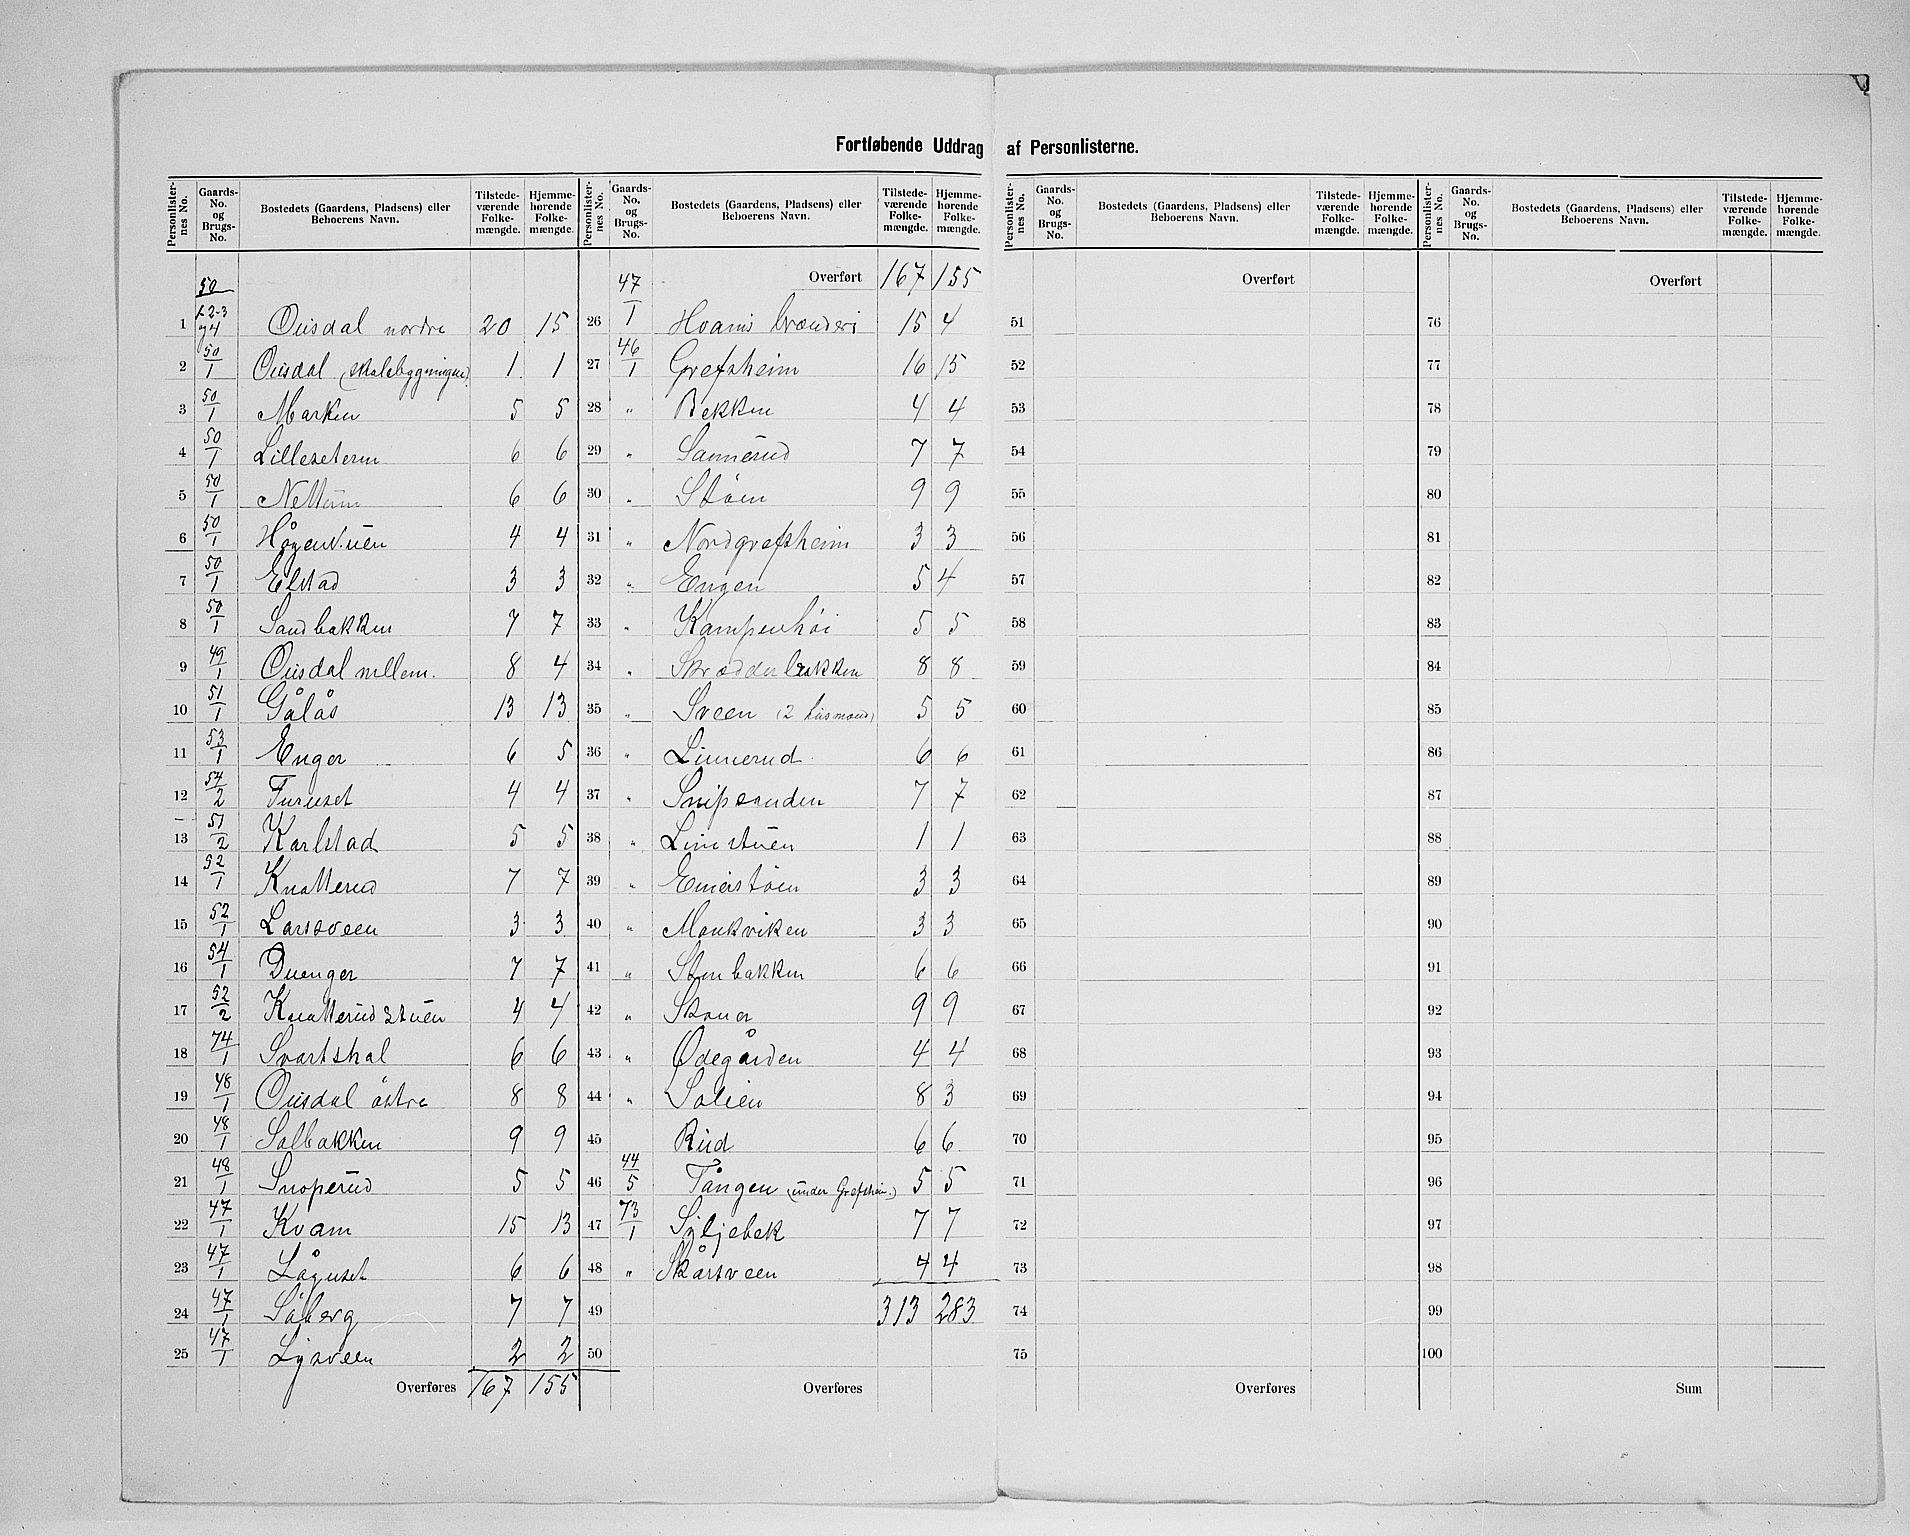 Fortløbende Uddrag af Personlisterne.
Personlisternes No. | Gaards-No. og Brugs-No. | Bostedets (Gaardens, Pladsens) eller Beboerens Navn. | Tilstedeværende Folkemængde. | Hjemmehørende Folkemængde.
1 | 50/1-2-3 og 4 | Ousdal nordre | 20 | 15
2 | 50/1 | Ousdal (skolebygningen) | 1 | 1
3 | 50/1 | Marken | 5 | 5
4 | 50/1 | Lilleseteren | 6 | 6
5 | 50/1 | Nettum | 6 | 6
6 | 50/1 | Høgenstuen | 4 | 4
7 | 50/1 | Elstad | 3 | 3
8 | 50/1 | Sandbakken | 7 | 7
9 | 49/1 | Ousdal mellem. | 8 | 4
10 | 51/1 | Gålås | 13 | 13
11 | 53/1 | Enger | 6 | 5
12 | 54/2 | Furuset | 4 | 4
13 | 51/2 | Karlstad | 5 | 5
14 | 52/1 | Knatterud | 7 | 7
15 | 52/1 | Larssveen | 3 | 3
16 | 54/1 | Duenger | 7 | 7
17 | 52/2 | Knatterudstuen | 4 | 4
18 | 74/1 | Svartshal | 6 | 6
19 | 48/1 | Ousdal östre | 8 | 8
20 | 48/1 | Solbakken | 9 | 9
21 | 48/1 | Snoperud | 5 | 5
22 | 47/1 | Kvam | 15 | 13
23 | 47/1 | Låguset | 6 | 6
24 | 47/1 | Såberg | 7 | 7
25 | 47/1 | Lysveen | 2 | 2
Overføres | 167 | 155
Personlisternes No. | Gaards-No. og Brugs-No. | Bostedets (Gaardens, Pladsens) eller Beboerens Navn. | Tilstedeværende Folkemængde. | Hjemmehørende Folkemængde.
Overført | 167 | 155
26 | 47/1 | Hvams brænderi | 15 | 4
27 | 46/1 | Grefsheim | 16 | 15
28 | " | Bekken | 4 | 4
29 | " | Sannerud | 7 | 7
30 | " | Støen | 9 | 9
31 | " | Nordgrefsheim | 3 | 3
32 | " | Engen | 5 | 4
33 | " | Kampenhøi | 5 | 5
34 | " | Skrædderbakken | 8 | 8
35 | " | Sveen (2 husmænd) | 5 | 5
36 | " | Linnerud | 6 | 6
37 | " | Snipsanden | 7 | 7
38 | " | Linstuen | 1 | 1
39 | " | Emerstøen | 3 | 3
40 | " | Monkviken | 3 | 3
41 | " | Stenbakken | 6 | 6
42 | " | Skoner | 9 | 9
43 | " | Ødegården | 4 | 4
44 | " | Solien | 8 | 3
45 | Rud | 6 | 6
46 | 44/5 | Tången (under Grefsheim.) | 5 | 5
47 | 73/1 | Syljebæk | 7 | 7
48 | " | Skårsveen | 4 | 4
49 | 313 | 283
50
Overføres
Personlisternes No. | Gaards-No. og Brugs-No. | Bostedets (Gaardens, Pladsens) eller Beboerens Navn. | Tilstedeværende Folkemængde. | Hjemmehørende Folkemængde.
Overført
51
52
53
54
55
56
57
58
59
60
61
62
63
64
65
66
67
68
69
70
71
72
73
74
75
Overføres
Personlisternes No. | Gaards-No. og Brugs-No. | Bostedets (Gaardens, Pladsens) eller Beboerens Navn. | Tilstedeværende Folkemængde. | Hjemmehørende Folkemængde.
Overført
76
77
78
79
80
81
82
83
84
85
86
87
88
89
90
91
92
93
94
95
96
97
98
99
100
Sum